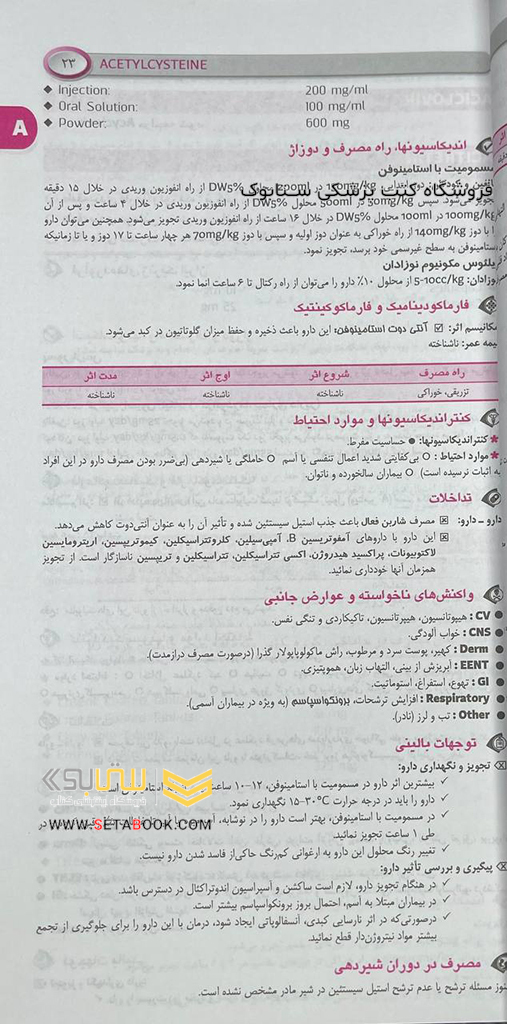 ۲۳ ACETYLCYSTEINE
◆ Injection: 200 mg/ml
◆ Oral Solution: 100 mg/ml
◆ Powder: 600 mg
A
اندیکاسیونها، راه مصرف و دوزاژ
مسمومیت با استامینوفن
فروشگاه کتب پزشکی ستابوک
محلول DW5% از راه انفوزیون وریدی در خلال ۱۵ دقیقه
تجویز می‌شود. سپس 50mg/kg در 500ml محلول DW5% از راه انفوزیون وریدی در خلال ۴ ساعت و پس از آن
100mg/kg در 100ml محلول DW5% در خلال ۱۶ ساعت از راه انفوزیون وریدی تجویز می‌شود. همچنین می‌توان دارو
را با دوز 140mg/kg از راه خوراکی به عنوان دوز اولیه و سپس با دوز 70mg/kg هر چهار ساعت تا ۱۷ دوز و یا تا زمانیکه
استامینوفن به سطح غیرسمی خود برسد، تجویز نمود.
ایلئوس مکونیوم نوزادان
نوزادان: 5-10cc/kg از محلول ۱۰٪ دارو را می‌توان از راه رکتال تا ۶ ساعت انما نمود.
فارماکودینامیک و فارماکوکینتیک
مکانیسم اثر: ☑ آنتی دوت استامینوفن: این دارو باعث ذخیره و حفظ میزان گلوتاتیون در کبد می‌شود.
نیمه عمر: ناشناخته
راه مصرف شروع اثر اوج اثر مدت اثر
تزریقی، خوراکی ناشناخته ناشناخته ناشناخته
کنتراندیکاسیونها و موارد احتیاط
★ کنتراندیکاسیونها: ● حساسیت مفرط.
★ موارد احتیاط: ○ بی‌کفایتی شدید اعمال تنفسی یا آسم ○ حاملگی یا شیردهی (بی‌ضرر بودن مصرف دارو در این افراد
به اثبات نرسیده است) ○ بیماران سالخورده و ناتوان.
تداخلات
دارو ـ دارو: ☒ مصرف شاربن فعال باعث جذب استیل سیستئین شده و تأثیر آن را به عنوان آنتی‌دوت کاهش می‌دهد.
☒ این دارو با داروهای آمفوتریسین B، آمپی‌سیلین، کلروتتراسیکلین، کیموتریپسین، اریترومایسین
لاکتوبیونات، پراکسید هیدروژن، اکسی تتراسیکلین، تتراسیکلین و تریپسین ناسازگار است. از تجویز
همزمان آنها خودداری نمائید.
واکنش‌های ناخواسته و عوارض جانبی
● CV: هیپوتانسیون، هیپرتانسیون، تاکیکاردی و تنگی نفس.
● CNS: خواب آلودگی.
● Derm: کهیر، پوست سرد و مرطوب، راش ماکولوپاپولار گذرا (درصورت مصرف درازمدت).
● EENT: آبریزش از بینی، التهاب زبان، هموپتیزی.
● GI: تهوع، استفراغ، استوماتیت.
● Respiratory: افزایش ترشحات، برونکواسپاسم (به ویژه در بیماران آسمی).
● Other: تب و لرز (نادر).
توجهات بالینی
☒ تجویز و نگهداری دارو:
✓ بیشترین اثر دارو در مسمومیت با استامینوفن، ۱۲-۱۰ ساعت
✓ دارو را باید در درجه حرارت ۳۰°C-۱۵ نگهداری نمود.
✓ در مسمومیت با استامینوفن، بهتر است دارو را در نوشابه،
طی ۱ ساعت تجویز نمائید.
✓ تغییر رنگ محلول این دارو به ارغوانی کم‌رنگ حاکی‌از فاسد شدن دارو نیست.
ستابوک
فروشگاه اینترنتی کتاب
WWW.SETABOOK.COM
☒ پیگیری و بررسی تأثیر دارو:
✓ در هنگام تجویز دارو، لازم است ساکشن و آسپیراسیون اندوتراکئال در دسترس باشد.
✓ در بیماران مبتلا به آسم، احتمال بروز برونکواسپاسم بیشتر است.
✓ درصورتی‌که در اثر نارسایی کبدی، آنسفالوپاتی ایجاد شود، درمان با این دارو را برای جلوگیری از تجمع
بیشتر مواد نیتروژن‌دار قطع نمائید.
مصرف در دوران شیردهی
هنوز مسئله ترشح یا عدم ترشح استیل سیستئین در شیر مادر مشخص نشده است.